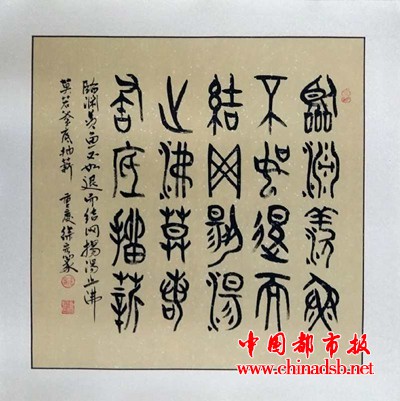 臨淵羨魚
不如退而
結网敭湯
止沸莫若
釜底抽薪
临渊羡鱼不如退而结网揚湯止沸
莫若釜底抽薪 重慶徐篆
中国都市报
www.chinadsb.net